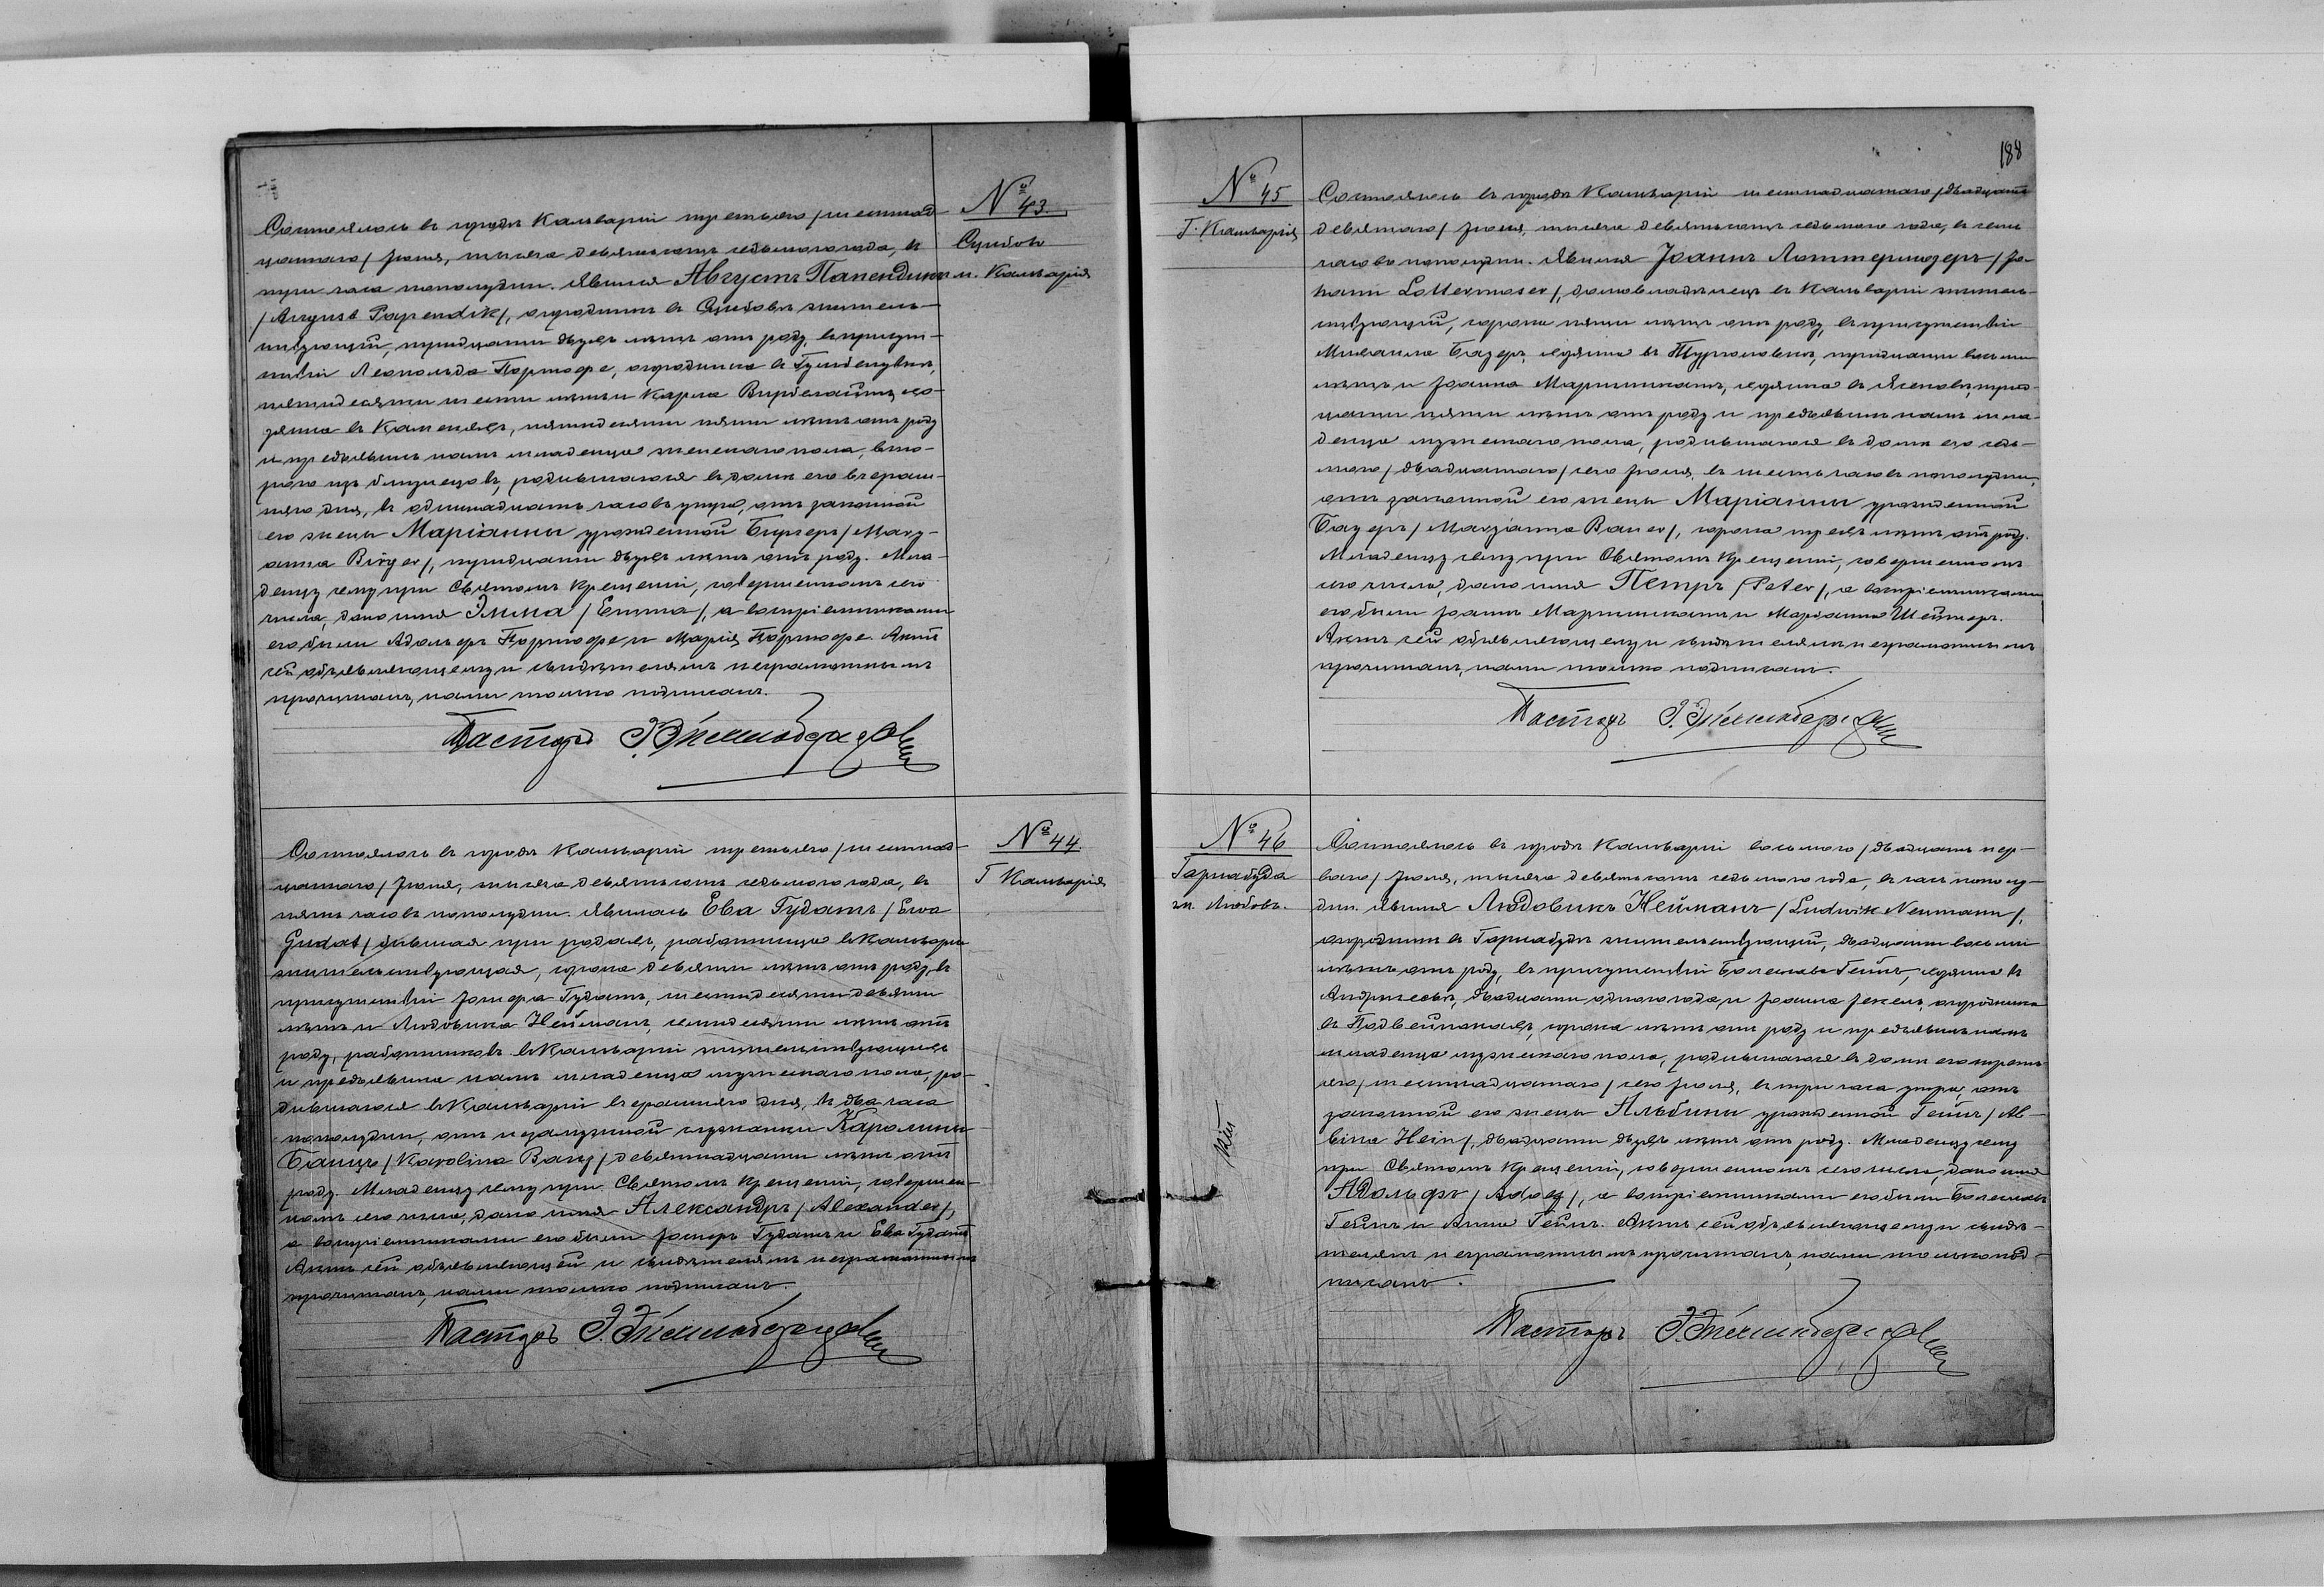 № 43.
Сцибовъ
м. Кальварія
Состоялось въ городѣ Кальваріи третьяго /шестнад-
цатаго/ Іюня, тысяча девятьсотъ седьмого года, въ
три часа пополудни. Явился Августъ Папендикъ
/August Papendik/, огородникъ въ житель-
ствующій, тридцати двухъ лѣтъ отъ роду, въ присут-
ствіи Леопольда огородника въ
пятидесяти шести лѣтъ и Карла хо-
зяина въ пятидесяти пяти лѣтъ отъ роду
и предъявилъ намъ младенца женскаго пола, вто-
рого изъ близнецовъ, родившагося въ домѣ его вчераш-
няго дня, въ одиннадцать часовъ утра, отъ законной
его жены Маріанны урожденной Биргеръ /Mary-
anna Birger/, тридцати двухъ лѣтъ отъ роду. Мла-
денцу сему при Святомъ Крещеніи, совершенномъ сего
числа, дано имя Эмма /Emma/, а воспріемниками
его были Адольфъ и Марія Актъ
сей объявляющему и свидѣтелямъ неграмотнымъ
прочитанъ, нами только подписанъ.
Пасторъ
№ 44.
Г. Кальварія
Состоялось въ городѣ Кальваріи третьяго /шестнад-
цатаго/ Іюня, тысяча девятьсотъ седьмого года, въ
пять часовъ пополудни. Явилась Ева Гудатъ /Ewa
Gudat/ бывшая при родахъ, работница въ Кальваріи
жительствующая, сорока девяти лѣтъ отъ роду, въ
присутствіи Іосифа Гудатъ, шестидесяти девяти
лѣтъ и Людовика Нейманъ, семидесяти лѣтъ отъ
роду, работниковъ въ Кальваріи жительствующихъ
и предъявила намъ младенца мужескаго пола, ро-
дившагося въ Кальваріи вчерашняго дня, въ два часа
пополудни, отъ незамужной служанки Каролины
Банцъ /Karolina Banz/ девятнадцати лѣтъ отъ
роду. Младенцу сему при Святомъ Крещеніи, совершен-
номъ сего числа, дано имя Александръ /Alexander/,
а воспріемниками его были Іосифъ Гудатъ и Ева Гудатъ
Актъ сей объявляющей и свидѣтелямъ неграмотнымъ
прочитанъ, нами только подписанъ.
Пасторъ
188
№ 45
Г. Кальварія
Состоялось въ городѣ Кальваріи шестнадцатаго /двадцать
девятаго/ Іюня, тысяча девятьсотъ седьмого года, въ семь
часовъ пополудни. Явился Іоаннъ Лоттермозеръ /Jo-
hann Lottermoser/, домовладѣлецъ въ Кальваріи житель-
ствующій, сорока пяти лѣтъ отъ роду, въ присутствіи
Михаила Бауеръ, хозяина въ тридцати восьми
лѣтъ и Іоанна Мартишкатъ, хозяина въ Ясеновѣ, трид-
цати пяти лѣтъ отъ роду и предъявилъ намъ мла-
денца мужескаго пола, родившагося въ домѣ его седь-
мого /двадцатаго/ сего Іюня, въ шесть часовъ пополудни,
отъ законной его жены Маріанны урожденной
Бауеръ /Maryanna Bauer/, сорока трехъ лѣтъ отъ роду.
Младенцу сему при Святомъ Крещеніи, совершенномъ
сего числа, дано имя Петръ /Peter/, а воспріемниками
его были Іоаннъ Мартишкатъ и Маріанна
Актъ сей объявляющему и свидѣтелямъ неграмотнымъ
прочитанъ, нами только подписанъ.
Пасторъ
№ 46
Гарнабуда
гм. Любовъ.
Состоялось въ городѣ Кальваріи восьмого /двадцать пер-
ваго/ Іюня, тысяча девятьсотъ седьмого года, въ часъ пополу-
дни. Явился Людовикъ Нейманъ /Ludwik Neumann/,
огородникъ въ Гарнабудѣ жительствующій, двадцати восьми
лѣтъ отъ роду, въ присутствіи Болеслава Гейнъ, хозяина въ
двадцати одного года и Іоанна огородника
въ сорока лѣтъ отъ роду и предъявилъ намъ
младенца мужескаго пола, родившагося въ домѣ его треть-
яго /шестнадцатаго/ сего Іюня, въ три часа утра, отъ
законной его жены Альбины урожденной Гейнъ /Al-
bina Hein/, двадцати двухъ лѣтъ отъ роду. Младенцу сему
при Святомъ Крещеніи, совершенномъ сего числа, дано имя
Адольфъ /Adolf/, а воспріемниками его были Болеславъ
Гейнъ и Анна Гейнъ. Актъ сей объявляющему и свидѣ-
телямъ неграмотнымъ прочитанъ, нами только под-
писанъ.
Пасторъ